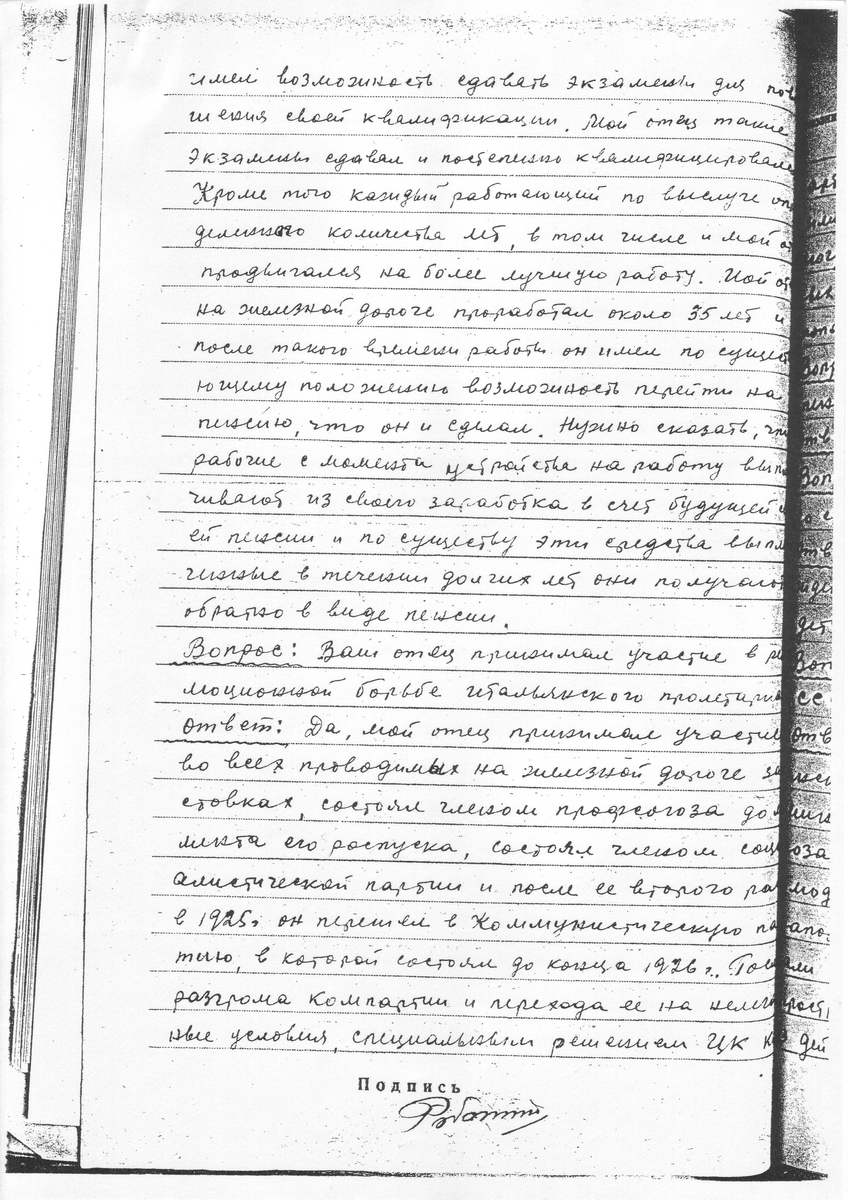 имел возможность сдавать экзамены для повы
шения своей квалификации. Мой отец такие
экзамены сдавал и постепенно квалифицировался
Кроме того каждый работающий по выслуге опре
деленного количества лет, в том числе и мой от
продвигался на более лучшую работу. Мой от
на железной дороге проработал около 35 лет и
после такого времени работы он имел по сущест
ющему положению возможность перейти на
пенсию, что он и сделал. Нужно сказать, что
рабочие с момента устройства на работу выпла
чивают из своего заработка в счет будущей
ей пенсии и по существу эти средства выпла
ченные в течении долгих лет они получают
обратно в виде пенсии.
Вопрос: Ваш отец принимал участие в ре
люционной борьбе итальянского пролетариа
Ответ: Да, мой отец принимал участие
во всех проводимых на железной дороге за
стовках, состоял членом профсоюза до
мента его роспуска, состоял членом соц
алистической партии и после ее второго раз
в 1925г он перешел в Коммунистическую пар
тию, в которой состоял до конца 1926 г..
разгрома компартии и перехода ее на нелегал
ные условия, специальным решением ЦК
Подпись